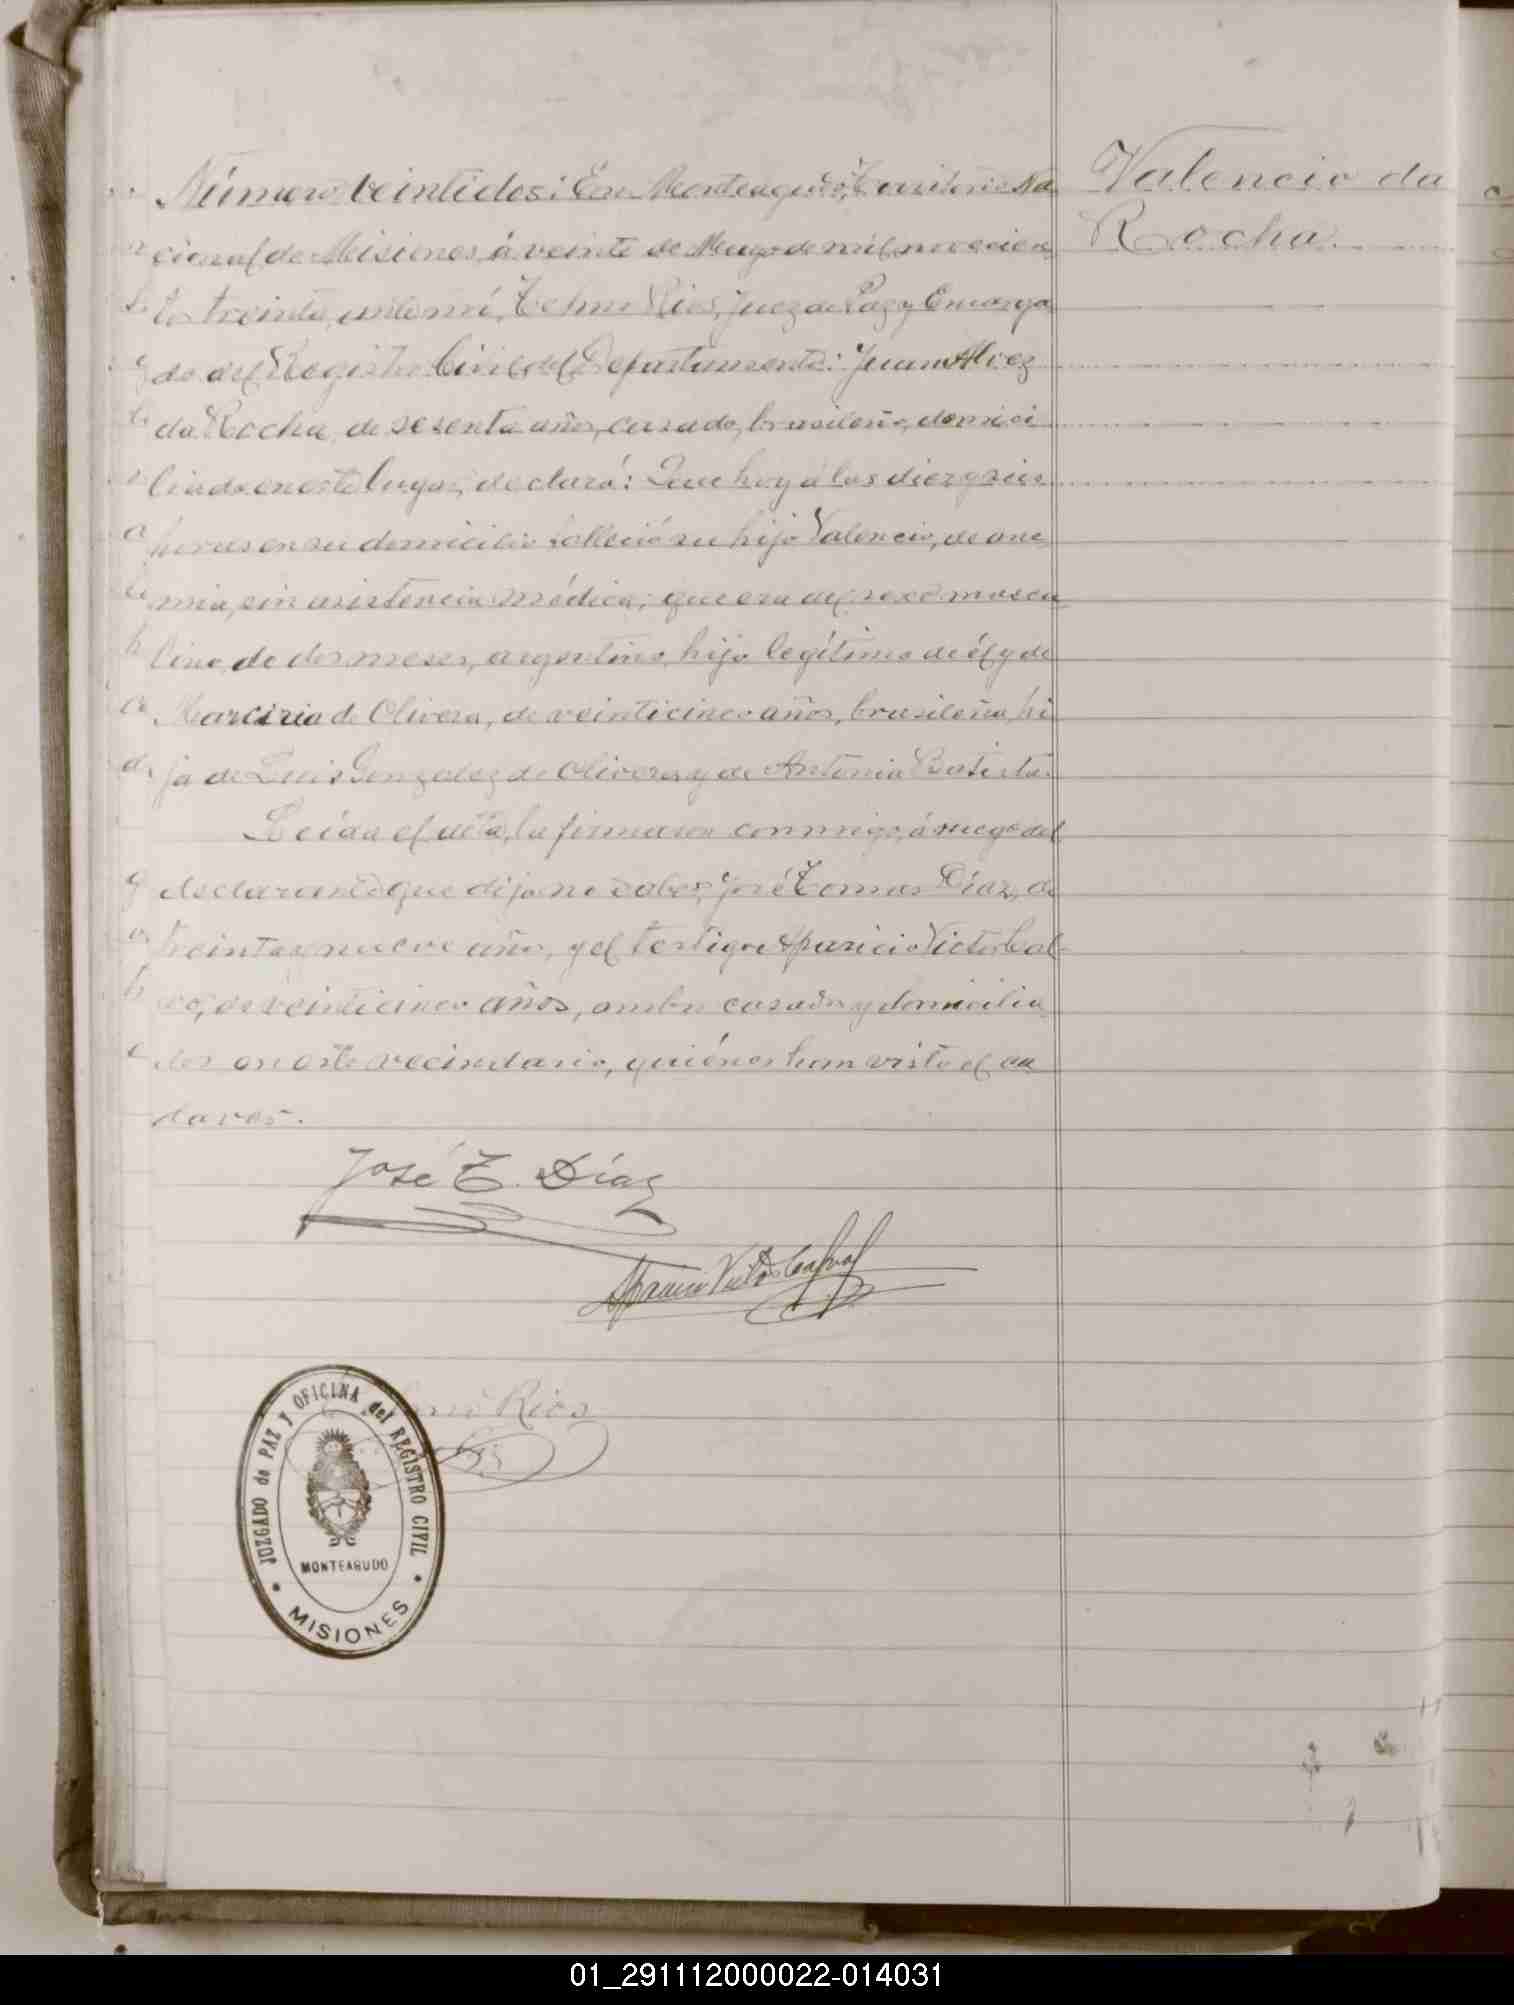 Número veintidos: En Monteagudo, Territorio Na
cional de Misiones, á veinte de Mayo de mil novecien
tos treinta, ante mí, Telmo Rios, Juez de Paz y Encarga
do del Registro Civil del Departamento: Juan Alvez
da Rocha, de sesenta años, casado, brasileño, domici
liado en este lugar, declaró: Que hoy á las diez y seis
horas en su domicilio falleció su hijo Valencio, de ane
mia, sin asistencia médica; que era del sexo mascu
lino, de dos meses, argentino, hijo legítimo de él y de
Marciria de Olivera, de veinticinco años, brasileña, hi
ja de Luis Gonzalez de Olivera y de Antonia Batista.
Leída el acta, la firmaron conmigo, á ruego del
declarante que dijo no saber, José Tomas Díaz, de
treinta y nueve años, y el testigo Aparicio Victor Cal
vo, de veinticinco años, ambos casados y domicilia
dos en este vecindario, quiénes han visto el ca
daver.
Valencio da
Rocha.
José T. Díaz
Aparicio Victor Calvo
Rios
JUZGADO de PAZ Y OFICINA del REGISTRO CIVIL
MONTEAGUDO
MISIONES
01_291112000022-014031